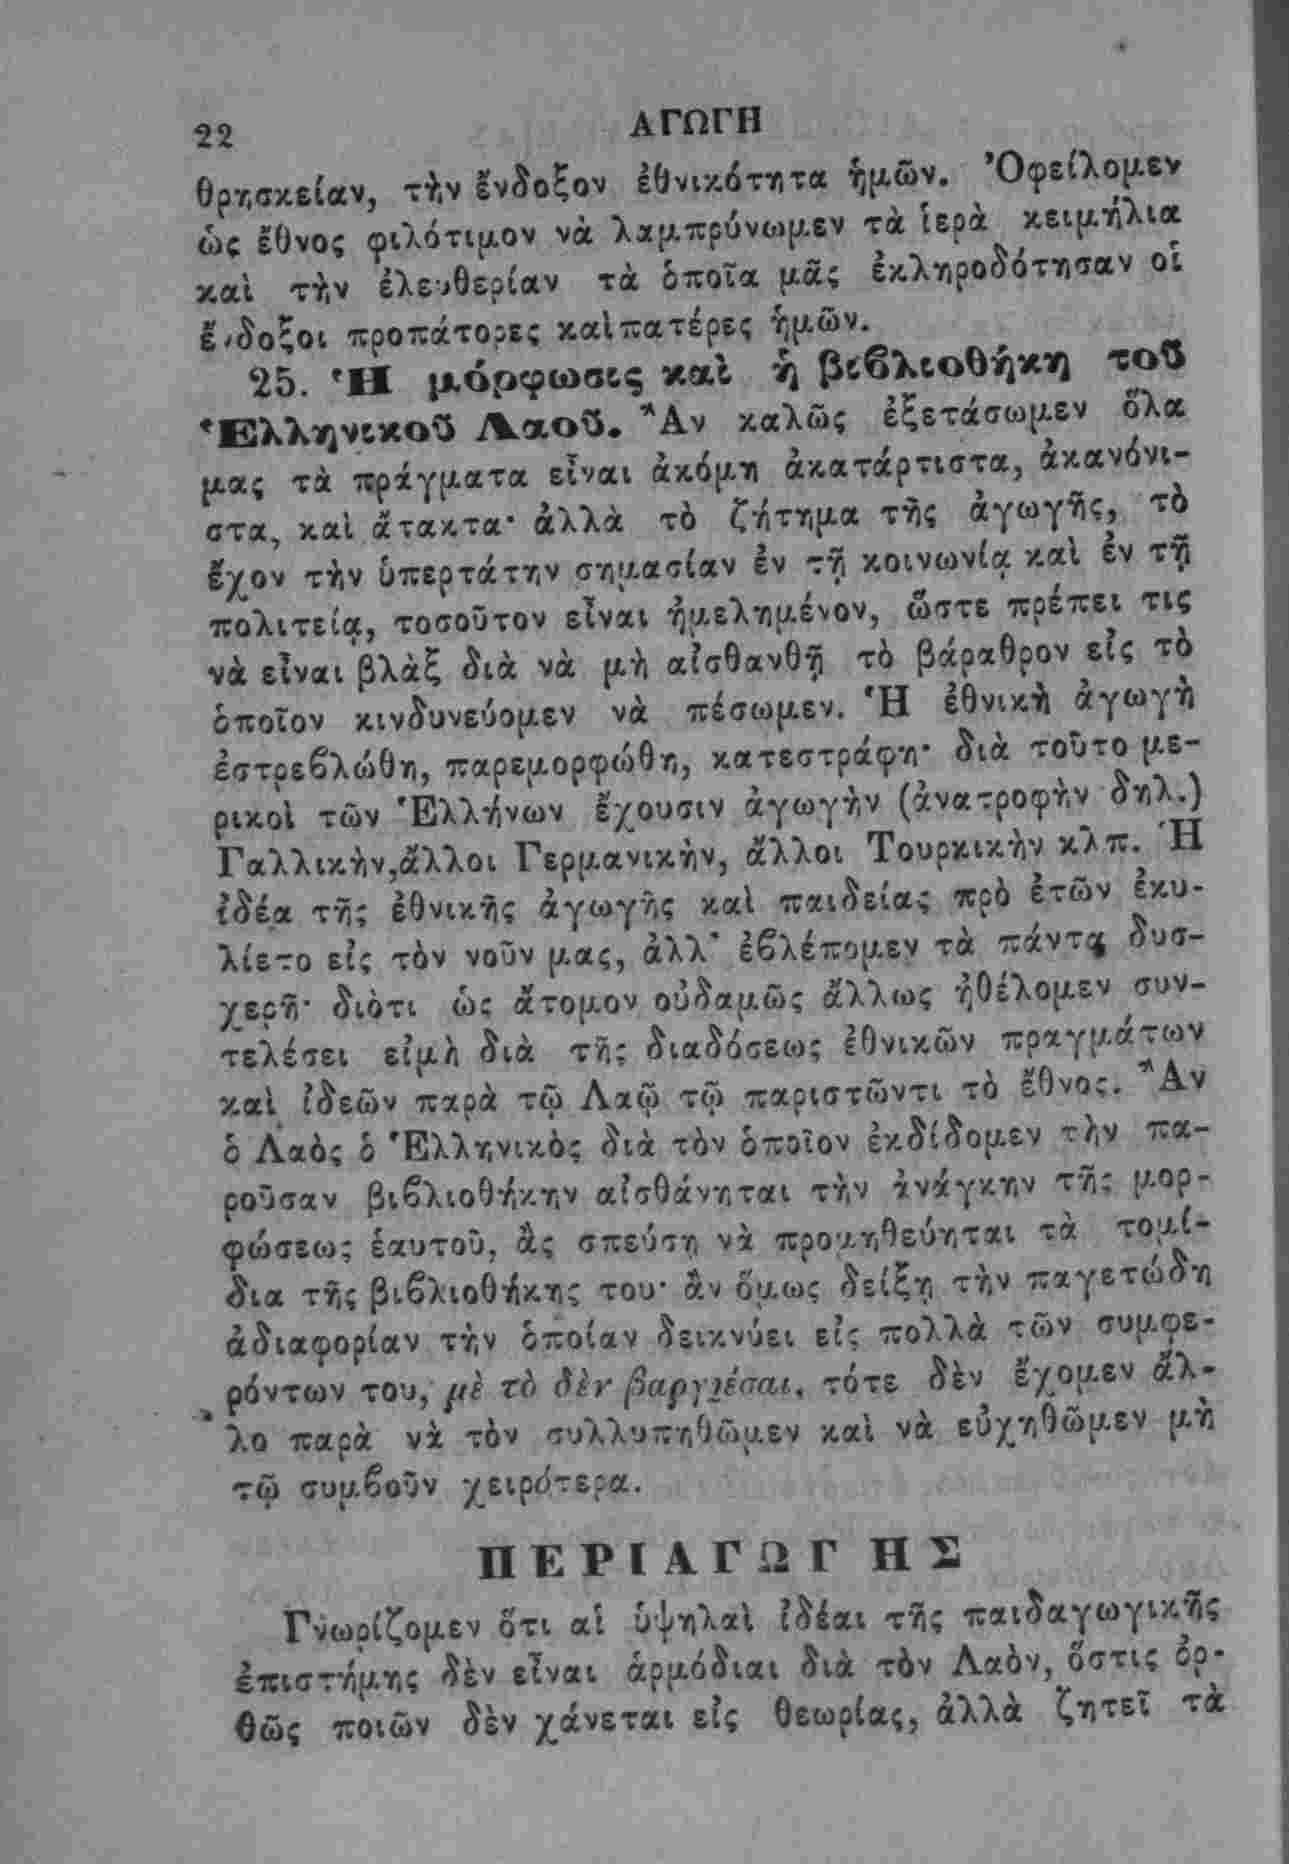 22 ΑΓΩΓΗ
θρησκείαν, τὴν ἔνδοξον ἐθνικότητα ἡμῶν. Ὀφείλομεν
ὡς ἔθνος φιλότιμον νὰ λαμπρύνωμεν τὰ ἱερὰ κειμήλια
καὶ τὴν ἐλευθερίαν τὰ ὁποῖα μᾶς ἐκληροδότησαν οἱ
ἔνδοξοι προπάτορες καὶπατέρες ἡμῶν.
25. Ἡ μόρφωσις καὶ ἡ βιβλιοθήκη τοῦ
Ἑλληνικοῦ Λαοῦ. Ἂν καλῶς ἐξετάσωμεν ὅλα
μας τὰ πράγματα εἶναι ἀκόμη ἀκατάρτιστα, ἀκανόνι-
στα, καὶ ἄτακτα· ἀλλὰ τὸ ζήτημα τῆς ἀγωγῆς, τὸ
ἔχον τὴν ὑπερτάτην σημασίαν ἐν τῇ κοινωνίᾳ καὶ ἐν τῇ
πολιτείᾳ, τοσοῦτον εἶναι ἠμελημένον, ὥστε πρέπει τις
νὰ εἶναι βλὰξ διὰ νὰ μὴ αἰσθανθῇ τὸ βάραθρον εἰς τὸ
ὁποῖον κινδυνεύομεν νὰ πέσωμεν. Ἡ ἐθνικὴ ἀγωγὴ
ἐστρεβλώθη, παρεμορφώθη, κατεστράφη· διὰ τοῦτο με-
ρικοὶ τῶν Ἑλλήνων ἔχουσιν ἀγωγὴν (ἀνατροφὴν δηλ.)
Γαλλικὴν,ἄλλοι Γερμανικὴν, ἄλλοι Τουρκικὴν κλπ. Ἡ
ἰδέα τῆς ἐθνικῆς ἀγωγῆς καὶ παιδείας πρὸ ἐτῶν ἐκυ-
λίετο εἰς τὸν νοῦν μας, ἀλλ' ἐβλέπομεν τὰ πάντα δυσ-
χερῆ· διότι ὡς ἄτομον οὐδαμῶς ἄλλως ἠθέλομεν συν-
τελέσει εἰμὴ διὰ τῆς διαδόσεως ἐθνικῶν πραγμάτων
καὶ ἰδεῶν παρὰ τῷ Λαῷ τῷ παριστῶντι τὸ ἔθνος. Ἂν
ὁ Λαὸς ὁ Ἑλληνικὸς διὰ τὸν ὁποῖον ἐκδίδομεν τὴν πα-
ροῦσαν βιβλιοθήκην αἰσθάνηται τὴν ἀνάγκην τῆς μορ-
φώσεως ἑαυτοῦ, ἂς σπεύσῃ νὰ προμηθεύηται τὰ τομί-
δια τῆς βιβλιοθήκης του· ἂν ὅμως δείξῃ τὴν παγετώδη
ἀδιαφορίαν τὴν ὁποίαν δεικνύει εἰς πολλὰ τῶν συμφε-
ρόντων του, μὲ τὸ δὲν βαρυέσαι, τότε δὲν ἔχομεν ἄλ-
λο παρὰ νὰ τὸν συλλυπηθῶμεν καὶ νὰ εὐχηθῶμεν μὴ
τῷ συμβοῦν χειρότερα.
ΠΕΡΙ ΑΓΩΓΗΣ
Γνωρίζομεν ὅτι αἱ ὑψηλαὶ ἰδέαι τῆς παιδαγωγικῆς
ἐπιστήμης δὲν εἶναι ἁρμόδιαι διὰ τὸν Λαὸν, ὅστις ὀρ-
θῶς ποιῶν δὲν χάνεται εἰς θεωρίας, ἀλλὰ ζητεῖ τὰ